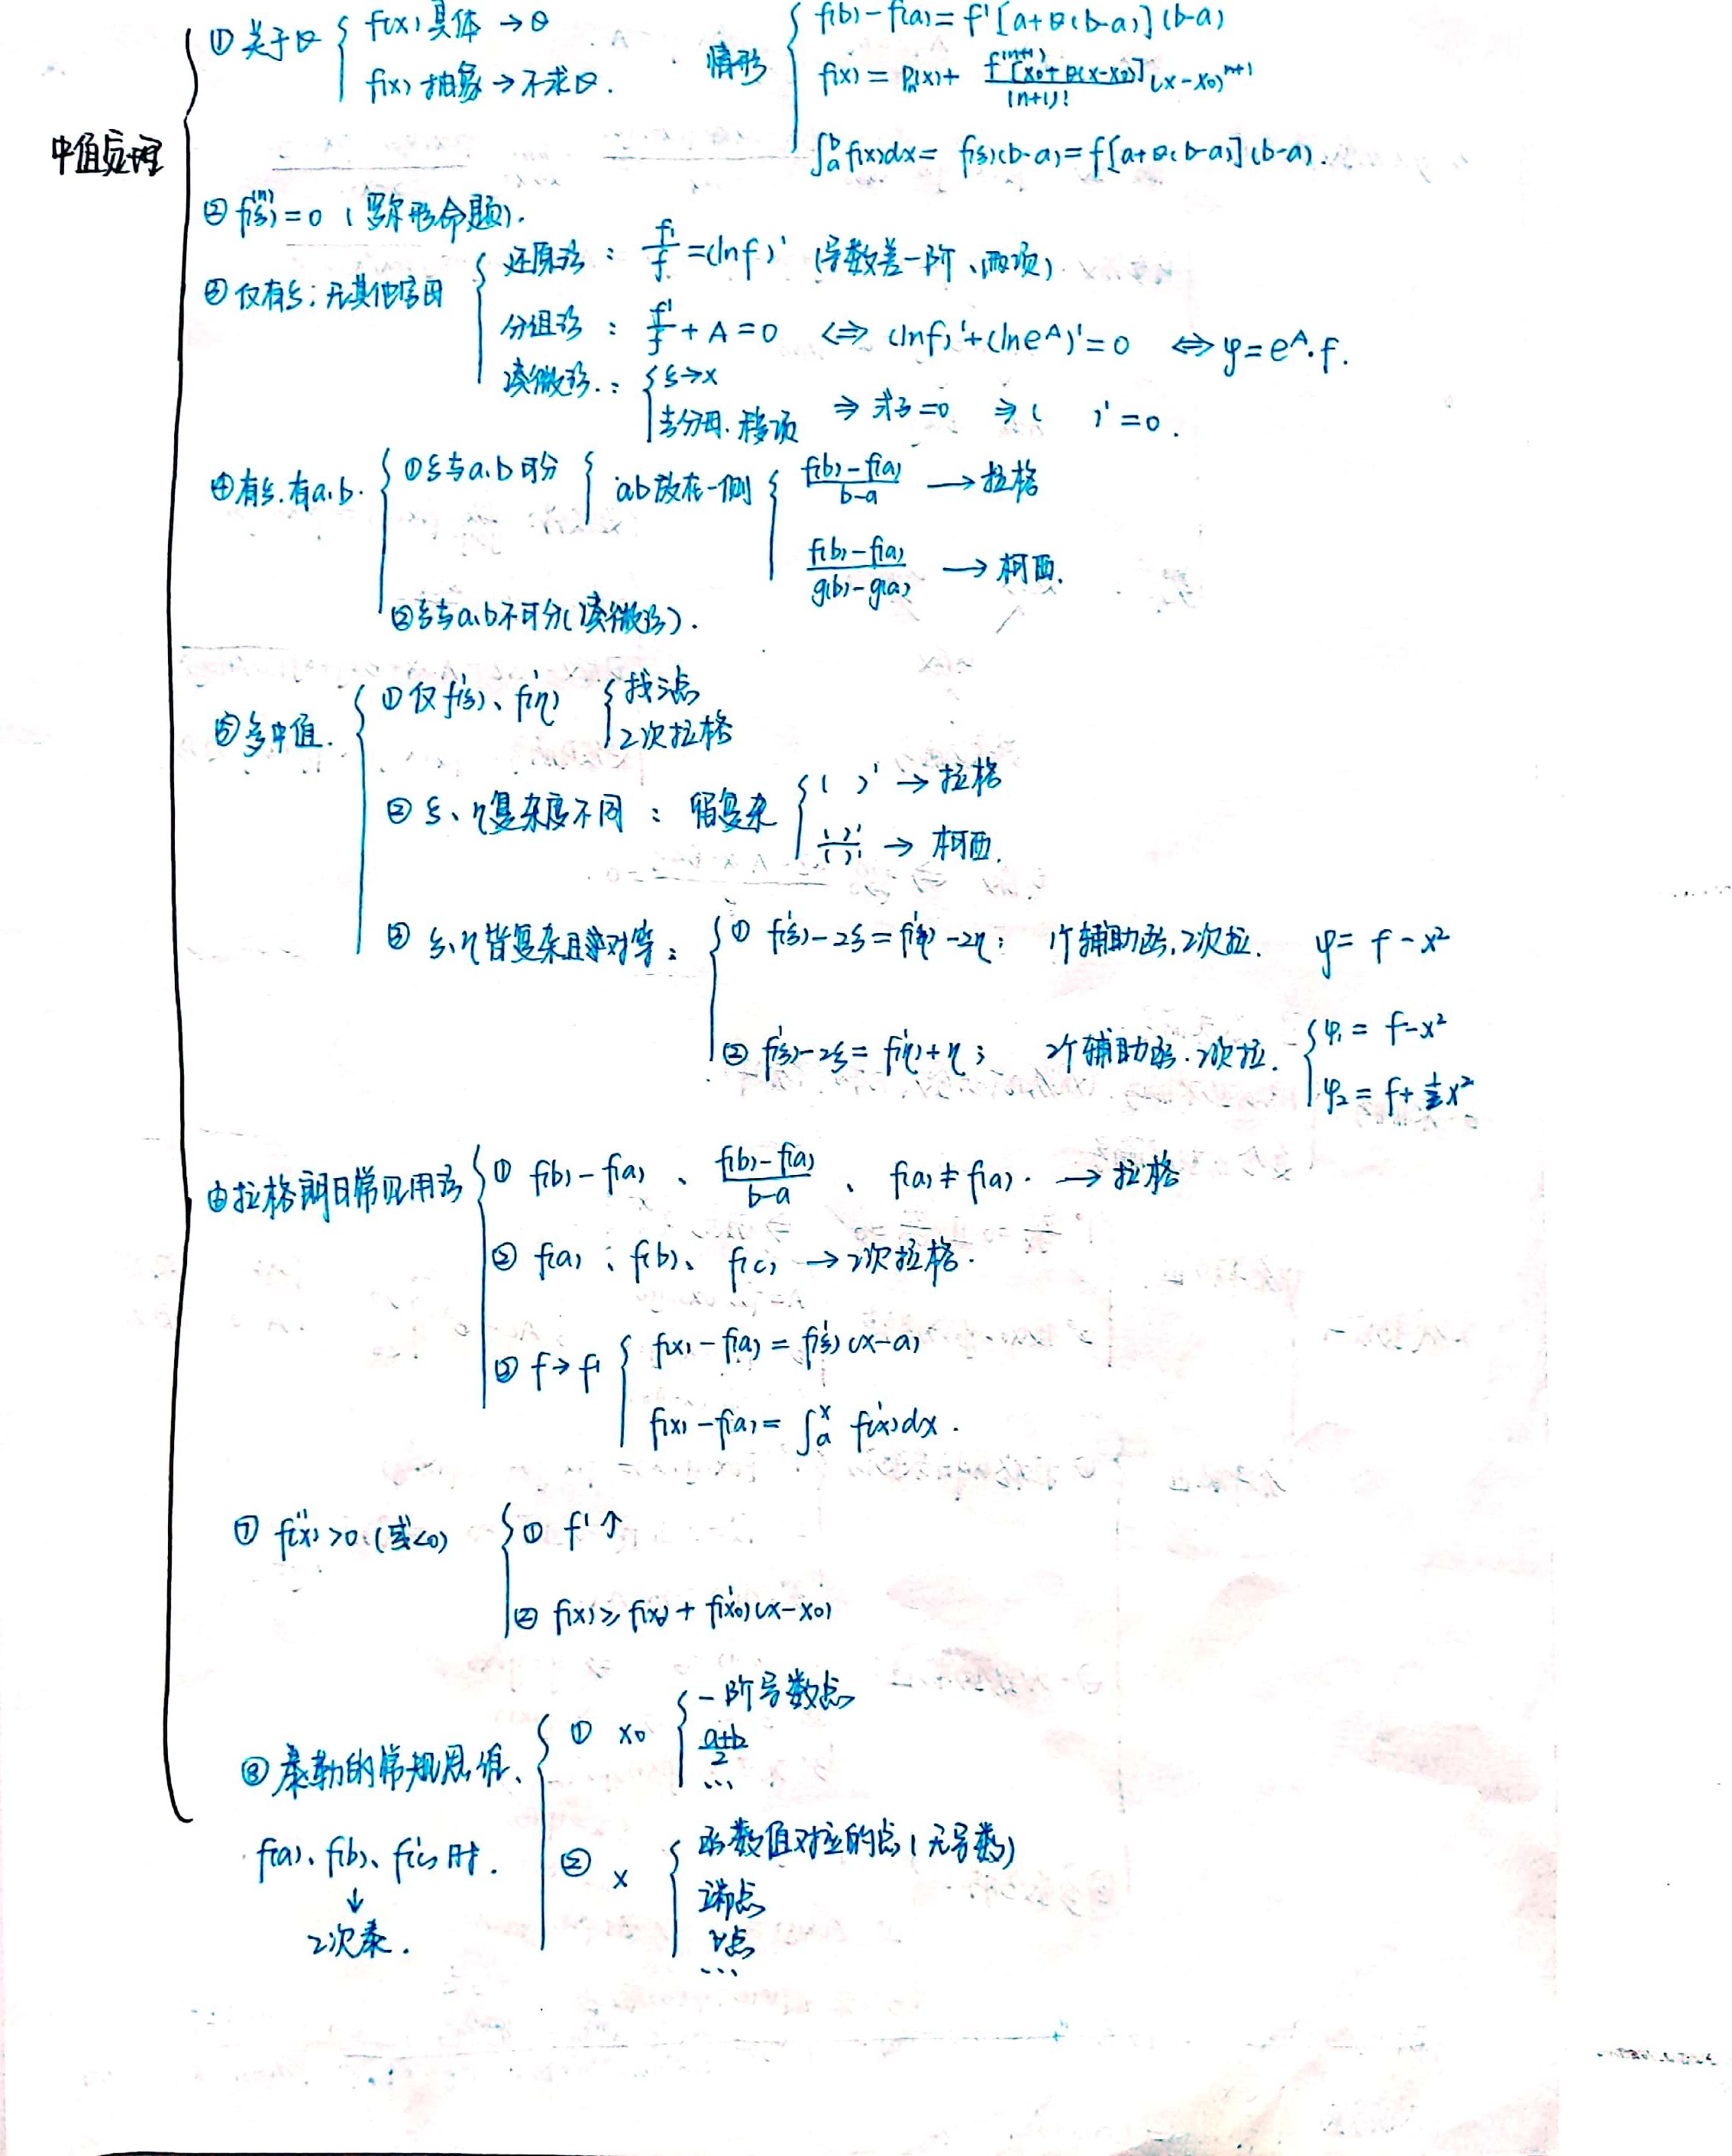 中值定理
① 关于θ { f(x) 具体 → θ
f(x) 抽象 → 不求θ.
情形 { f(b) - f(a) = f'[a+θ(b-a)](b-a)
f(x) = Pn(x) + f^(n+1)[x0+θ(x-x0)]/(n+1)! (x-x0)^(n+1)
∫_a^b f(x)dx = f(ξ)(b-a) = f[a+θ(b-a)](b-a).
② f^(n)(ξ) = 0 (罗尔形命题).
③ 仅有ξ; 无其他字母 { 还原法: f'/f = (ln f)' (导数差一阶、两项)
分组法: f'/f + A = 0 ⇔ (ln f)' + (ln e^A)' = 0 ⇔ φ = e^A·f.
凑微法.: { ξ→x
去分母. 移项 ⇒ 式子=0 ⇒ ( )' = 0.
④ 有ξ. 有a、b. { ① ξ与a、b可分 { ab放在一侧 { (f(b)-f(a))/(b-a) → 拉格
(f(b)-f(a))/(g(b)-g(a)) → 柯西.
② ξ与a、b不可分(凑微法).
⑤ 多中值. { ① 仅f'(ξ)、f'(η) { 找三点
2次拉格
② ξ、η复杂度不同: 留复杂 { ( )' → 拉格
( )'/( )' → 柯西.
③ ξ、η皆复杂且对等: { ① f'(ξ)-2ξ = f'(η)-2η; 1个辅助函, 2次拉. φ = f - x²
② f'(ξ)-2ξ = f'(η)+η; 2个辅助函. 2次拉. { φ1 = f-x²
φ2 = f+½x²
⑥ 拉格朗日常见用法 { ① f(b)-f(a)、(f(b)-f(a))/(b-a)、f(a)≠f(a). → 拉格
② f(a); f(b)、f(c) → 2次拉格.
③ f→f' { f(x)-f(a) = f'(ξ)(x-a)
f(x)-f(a) = ∫_a^x f'(x)dx.
⑦ f''(x)>0.(或<0) { ① f'↑
② f(x) ≥ f(x0) + f'(x0)(x-x0)
⑧ 泰勒的常规思维、 { ① x0 { 一阶导数点
(a+b)/2
...
f(a)、f(b)、f'(c)时.
↓
2次泰.
② x { 函数值对应的点(无导数)
端点
...